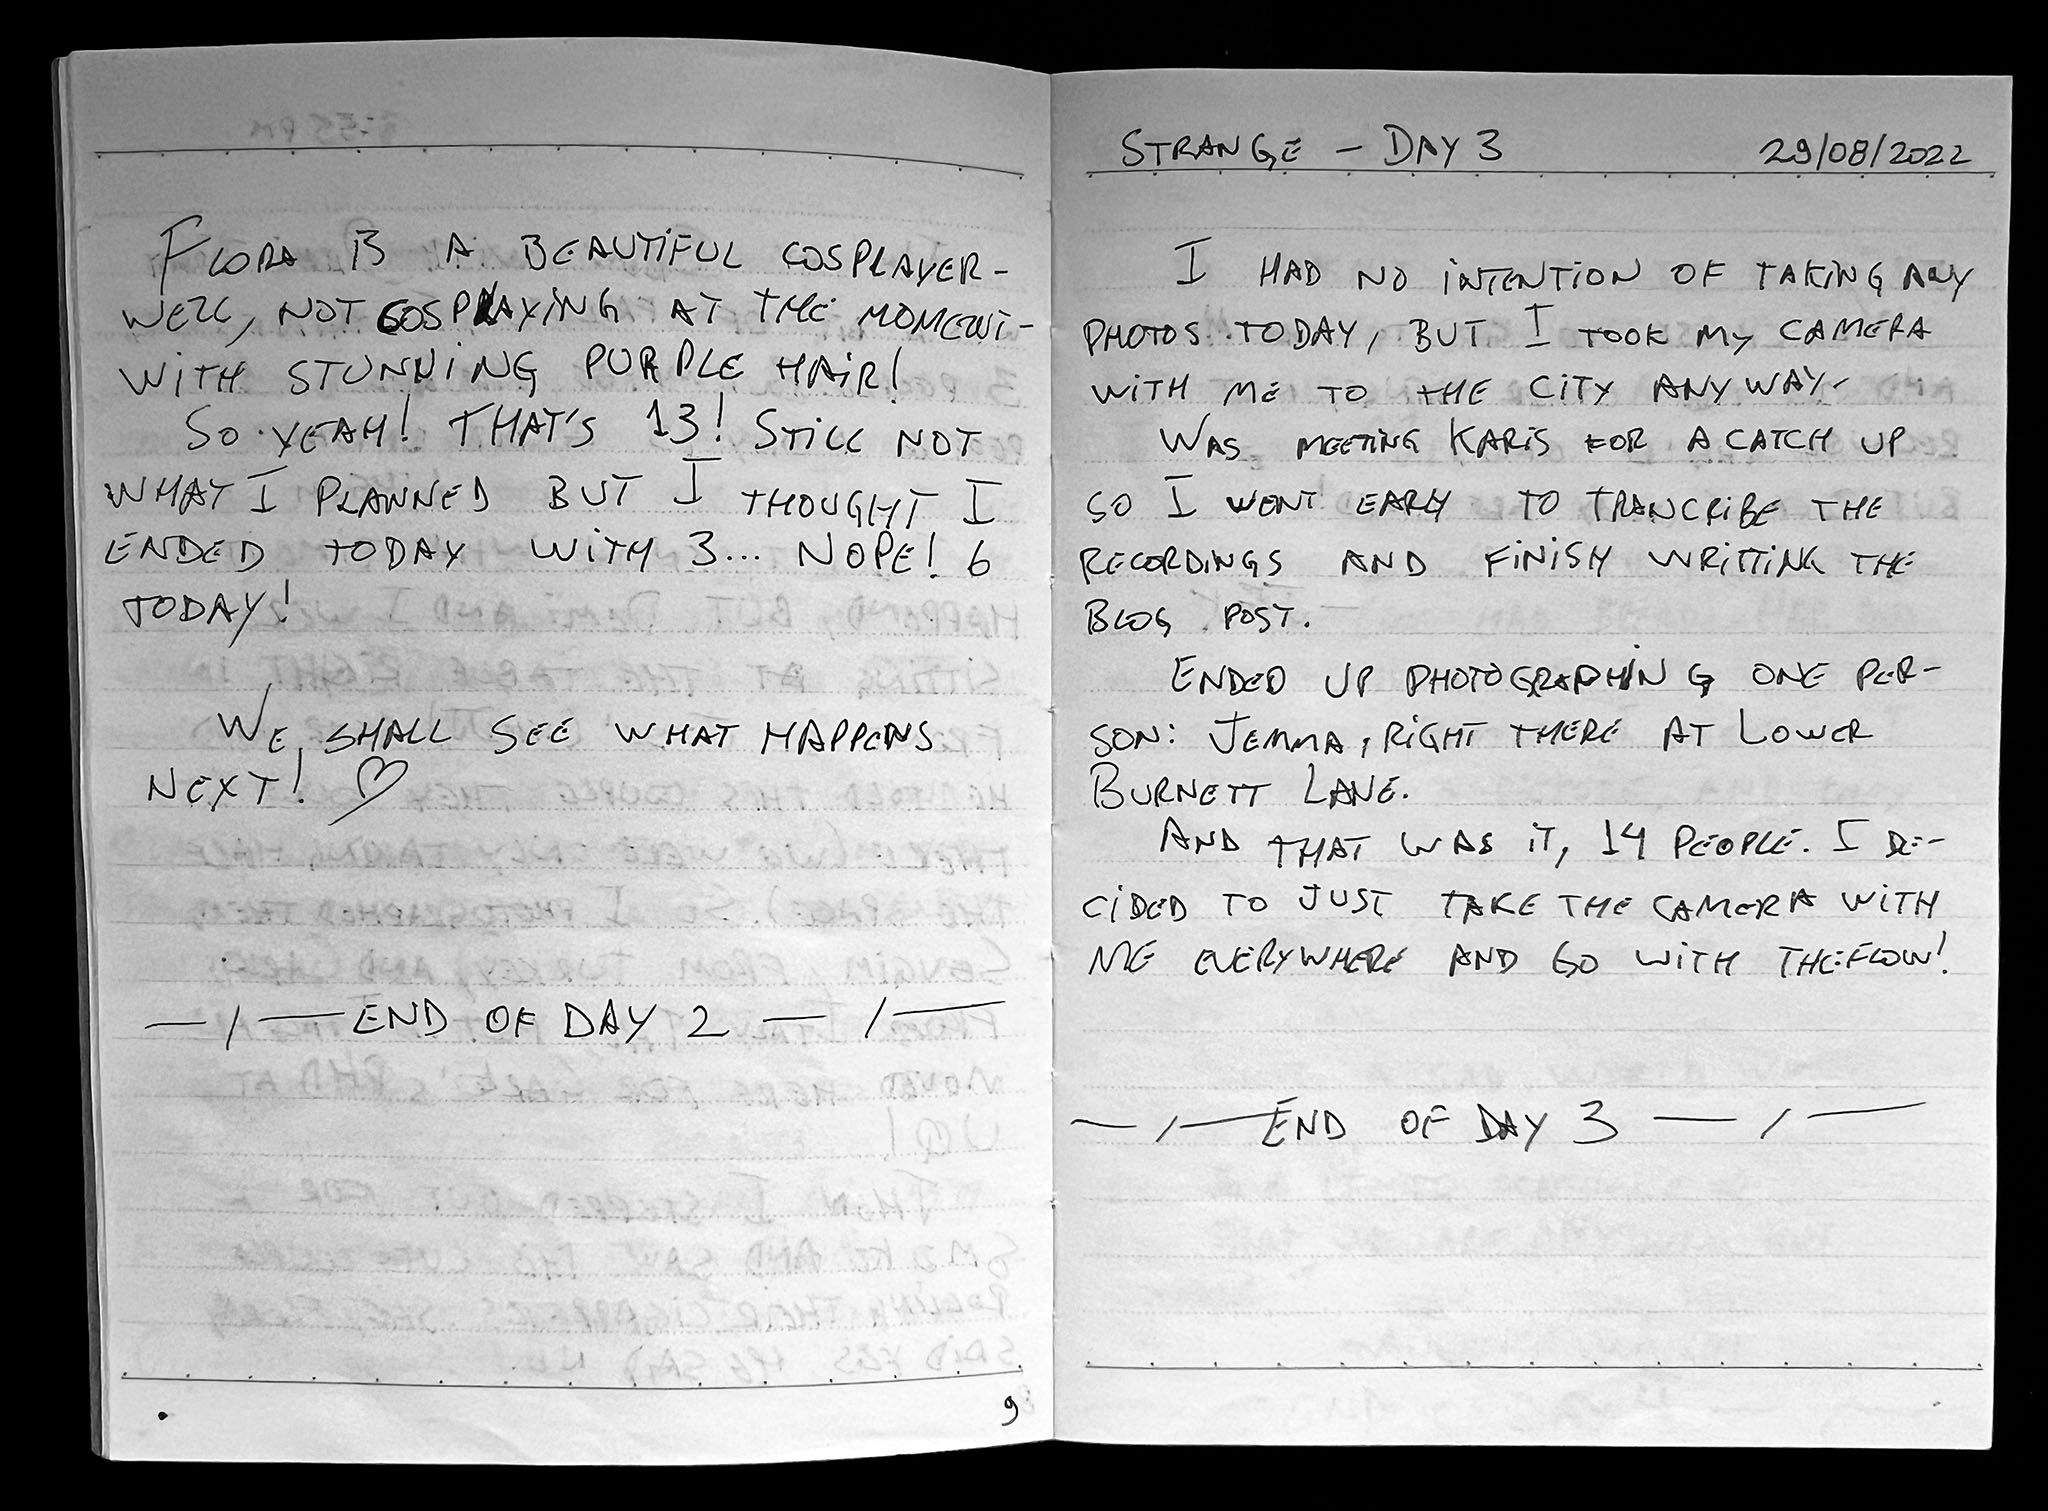 FLORA IS A BEAUTIFUL COSPLAYER-
WELL, NOT COSPLAYING AT THE MOMENT-
WITH STUNNING PURPLE HAIR!
SO YEAH! THAT'S 13! STILL NOT
WHAT I PLANNED BUT I THOUGHT I
ENDED TODAY WITH 3... NOPE! 6
TODAY!
WE SHALL SEE WHAT HAPPENS
NEXT! ♡
—/— END OF DAY 2 —/—
9
STRANGE - DAY 3 29/08/2022
I HAD NO INTENTION OF TAKING ANY
PHOTOS TODAY, BUT I TOOK MY CAMERA
WITH ME TO THE CITY ANYWAY-
WAS MEETING KARIS FOR A CATCH UP
SO I WENT EARLY TO TRANCRIBE THE
RECORDINGS AND FINISH WRITTING THE
BLOG POST.
ENDED UP PHOTOGRAPHING ONE PER-
SON: JEMMA, RIGHT THERE AT LOWER
BURNETT LANE.
AND THAT WAS IT, 14 PEOPLE. I DE-
CIDED TO JUST TAKE THE CAMERA WITH
ME EVERYWHERE AND GO WITH THE FLOW!
—/— END OF DAY 3 —/—